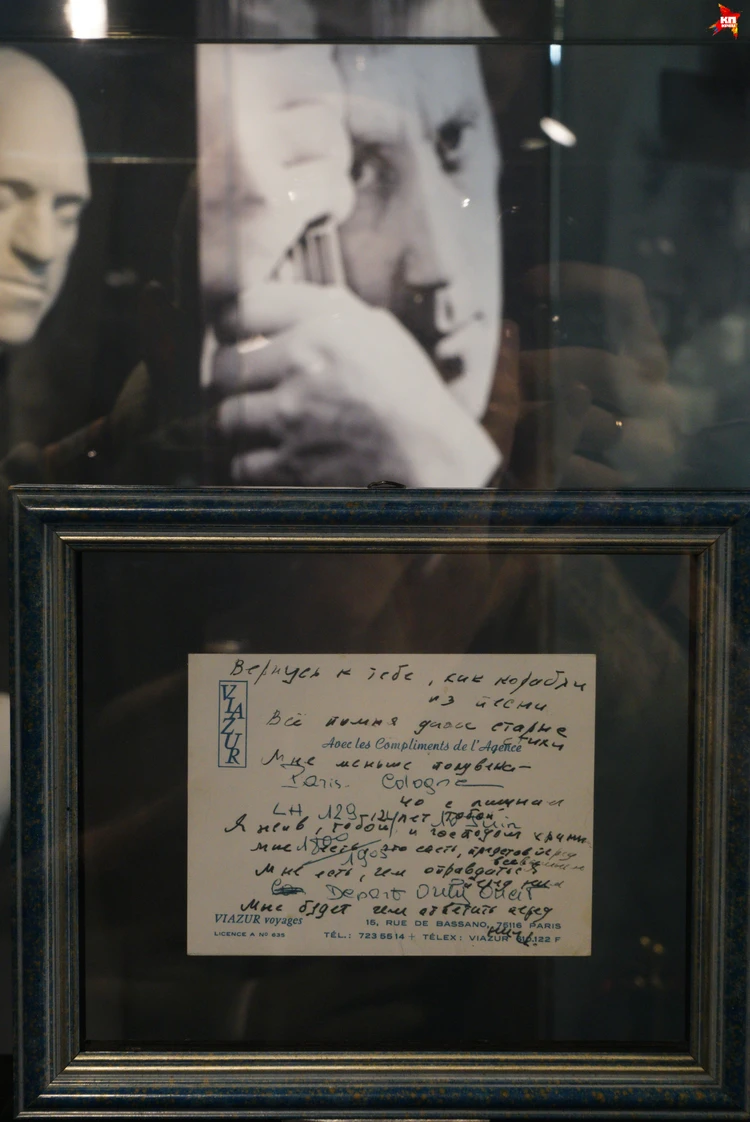 КП
Вернусь к тебе, как корабли
из песни
Всё помня даже старые
стихи
VIAZUR
Avec les Compliments de l'Agence
Мне меньше полувека –
Paris - Cologne
40 с лишним
LH 129 -
12 лет тобой
Я жив, тобой и господом храним
мне есть что спеть, представ перед
всевышним
1905
Мне есть, чем оправдаться
перед ним
Depart Orly Ouest
Мне будет чем ответить перед
ним.
VIAZUR voyages
15, RUE DE BASSANO, 75116 PARIS
LICENCE A Nº 635
TÉL.: 723 55 14 + TÉLEX: VIAZUR 610.122 F